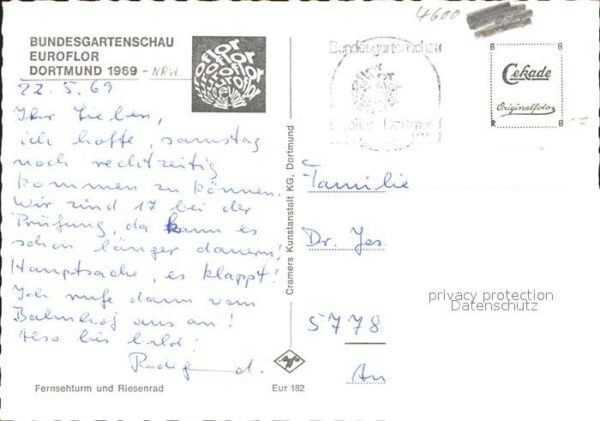 4600
BUNDESGARTENSCHAU
EUROFLOR
DORTMUND 1969 - NRW.
22.5.69
Ihr Lieben,
ich hoffe, samstag
noch rechtzeitig
kommen zu können.
Wir sind 17 bei der
Prüfung, da kann es
schon länger dauern!
Hauptsache, es klappt!
Ich rufe dann vom
Bahnhof aus an!
Also bis bald!
Fernsehturm und Riesenrad
Eur 182
Cramers Kunstanstalt KG, Dortmund
Bundesgartenschau
Euroflor Dortmund
Cekade
Originalfotos
Familie
Dr. Jos
5778
privacy protection
Datenschutz